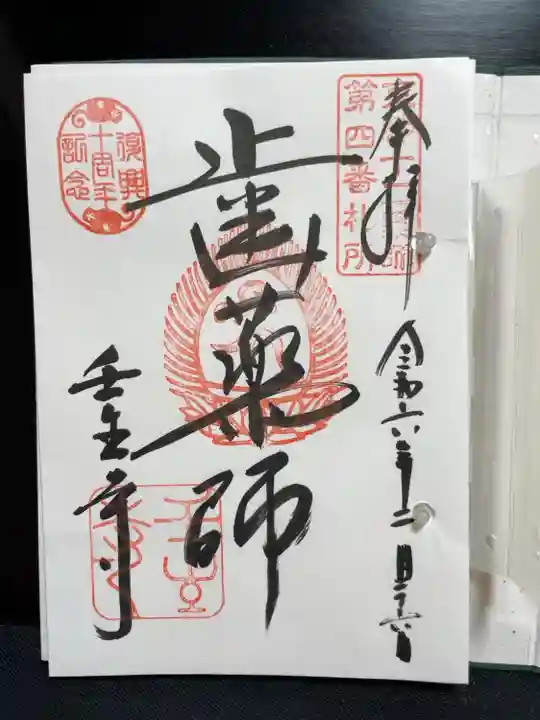 奉拝
第四番札所
令和六年十二月二十六日
歯薬師
復興
十周年
記念
壬生寺